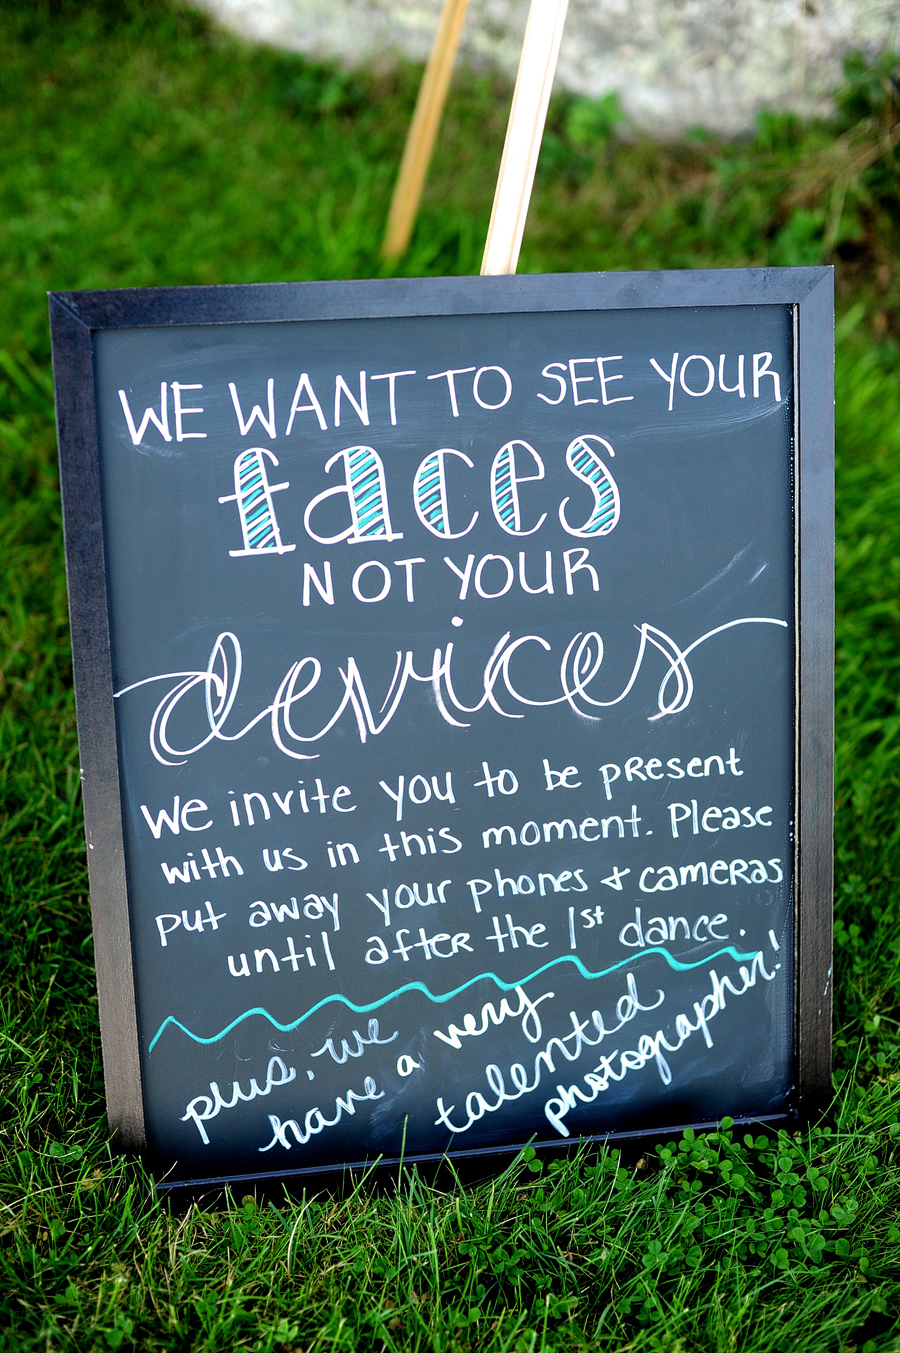 WE WANT TO SEE YOUR
faces
NOT YOUR
devices
We invite you to be present
with us in this moment. Please
put away your phones & cameras
until after the 1st dance.
plus, we
have a very
talented
photographer!